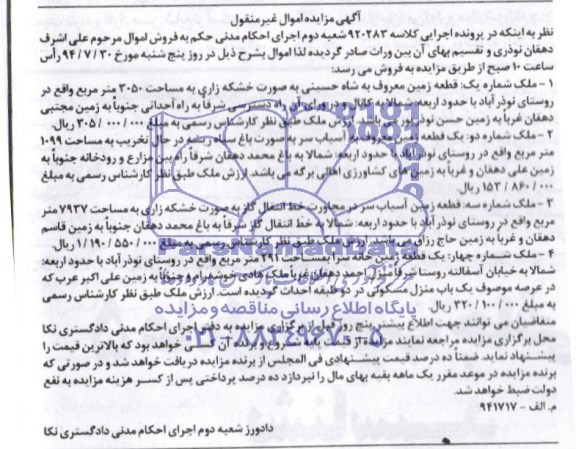 آگهی مزایده اموال غیرمنقول
نظر به اینکه در پرونده اجرایی کلاسه ۹۲۰۲۸۳ شعبه دوم اجرای احکام مدنی حکم به فروش اموال مرحوم علی اشرف
دهقان نوذری و تقسیم بهای آن بین وراث صادر گردیده لذا اموال بشرح ذیل در روز پنج شنبه مورخ ۹۴/۷/۳۰ رأس
ساعت ۱۰ صبح از طریق مزایده به فروش می رسد:
۱ - ملک شماره یک: قطعه زمین معروف به شاه حسینی به صورت خشکه زاری به مساحت ۳۰۵۰ متر مربع واقع در
روستای نوذر آباد با حدود اربعه: شمالا به کانال و در ورای آن راه دسترسی شرقاً به راه احداثی جنوباً به زمین مجتبی
دهقان غرباً به زمین حسن نوذر پور می باشد. ارزش ملک طبق نظر کارشناس رسمی به مبلغ ۳۰۵/۰۰۰/۰۰۰ ریال.
۲ - ملک شماره دو: یک قطعه زمین معروف به آسیاب سر به صورت باغ سیاه ریشه در حال تخریب به مساحت ۱۰۹۹
متر مربع واقع در روستای نوذر آباد با حدود اربعه: شمالا به باغ محمد دهقان شرقاً راه بین مزارع و رودخانه جنوباً به
زمین علی دهقان و غرباً به زمین های کشاورزی اهالی برگه می باشد. ارزش ملک طبق نظر کارشناس رسمی به مبلغ
۱۵۳/۸۶۰/۰۰۰ ریال.
۳ - ملک شماره سه: قطعه زمین آسیاب سر در مجاورت خط انتقال گاز به صورت خشکه زاری به مساحت ۷۹۳۷ متر
مربع واقع در روستای نوذر آباد با حدود اربعه: شمالا به خط انتقال گاز شرقاً به باغ محمد دهقان جنوباً به زمین قاسم
دهقان و غرباً به زمین حاج رزاق می باشد. ارزش ملک طبق نظر کارشناس رسمی به مبلغ ۱/۱۹۰/۵۵۰/۰۰۰ ریال.
۴ - ملک شماره چهار: یک قطعه زمین خانه سرا بمساحت ۲۹۱ متر مربع واقع در روستای نوذر آباد با حدود اربعه:
شمالا به خیابان آسفالته روستا شرقاً منزل احمد دهقان غرباً ملک هادی خوشفرام و جنوباً به زمین علی اکبر عرب که
در عرصه موصوف یک باب منزل مسکونی در دو طبقه احداث گردیده است. ارزش ملک طبق نظر کارشناس رسمی
به مبلغ ۳۲۰/۱۰۰/۰۰۰ ریال.
متقاضیان می توانند جهت اطلاع بیشتر پنج روز قبل از برگزاری مزایده به دفتر اجرای احکام مدنی دادگستری نکا
محل برگزاری مزایده مراجعه نمایند مزایده از قیمت پایه شروع و برنده آن کسی خواهد بود که بالاترین قیمت را
پیشنهاد نماید. ضمناً ده درصد قیمت پیشنهادی فی المجلس از برنده مزایده دریافت خواهد شد و در صورتی که
برنده مزایده در موعد مقرر یک ماهه بقیه بهای مال را نپردازد ده درصد پرداختی پس از کسر هزینه مزایده به نفع
دولت ضبط خواهد شد.
م. الف - ۹۴۱۷۱۷
دادورز شعبه دوم اجرای احکام مدنی دادگستری نکا
ParsNamadData
پایگاه اطلاع رسانی مناقصه و مزایده
۰۲۱-۸۸۳۴۹۶۷۰-۵